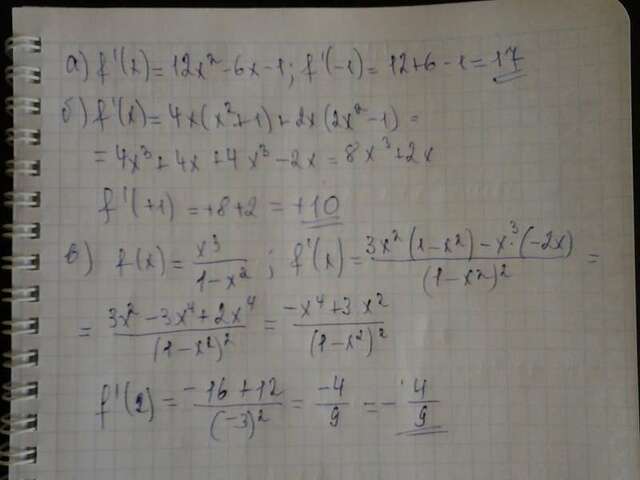 а) f'(x) = 12x² - 6x - 1; f'(-1) = 12+6-1 = 17
б) f'(x) = 4x(x²+1) + 2x(2x²-1) =
= 4x³ + 4x + 4x³ - 2x = 8x³ + 2x
f'(+1) = +8+2 = +10
в) f(x) = x³/(1-x²); f'(x) = (3x²(1-x²) - x³·(-2x))/(1-x²)² =
= (3x² - 3x⁴ + 2x⁴)/(1-x²)² = (-x⁴ + 3x²)/(1-x²)²
f'(2) = (-16+12)/(-3)² = -4/9 = -4/9